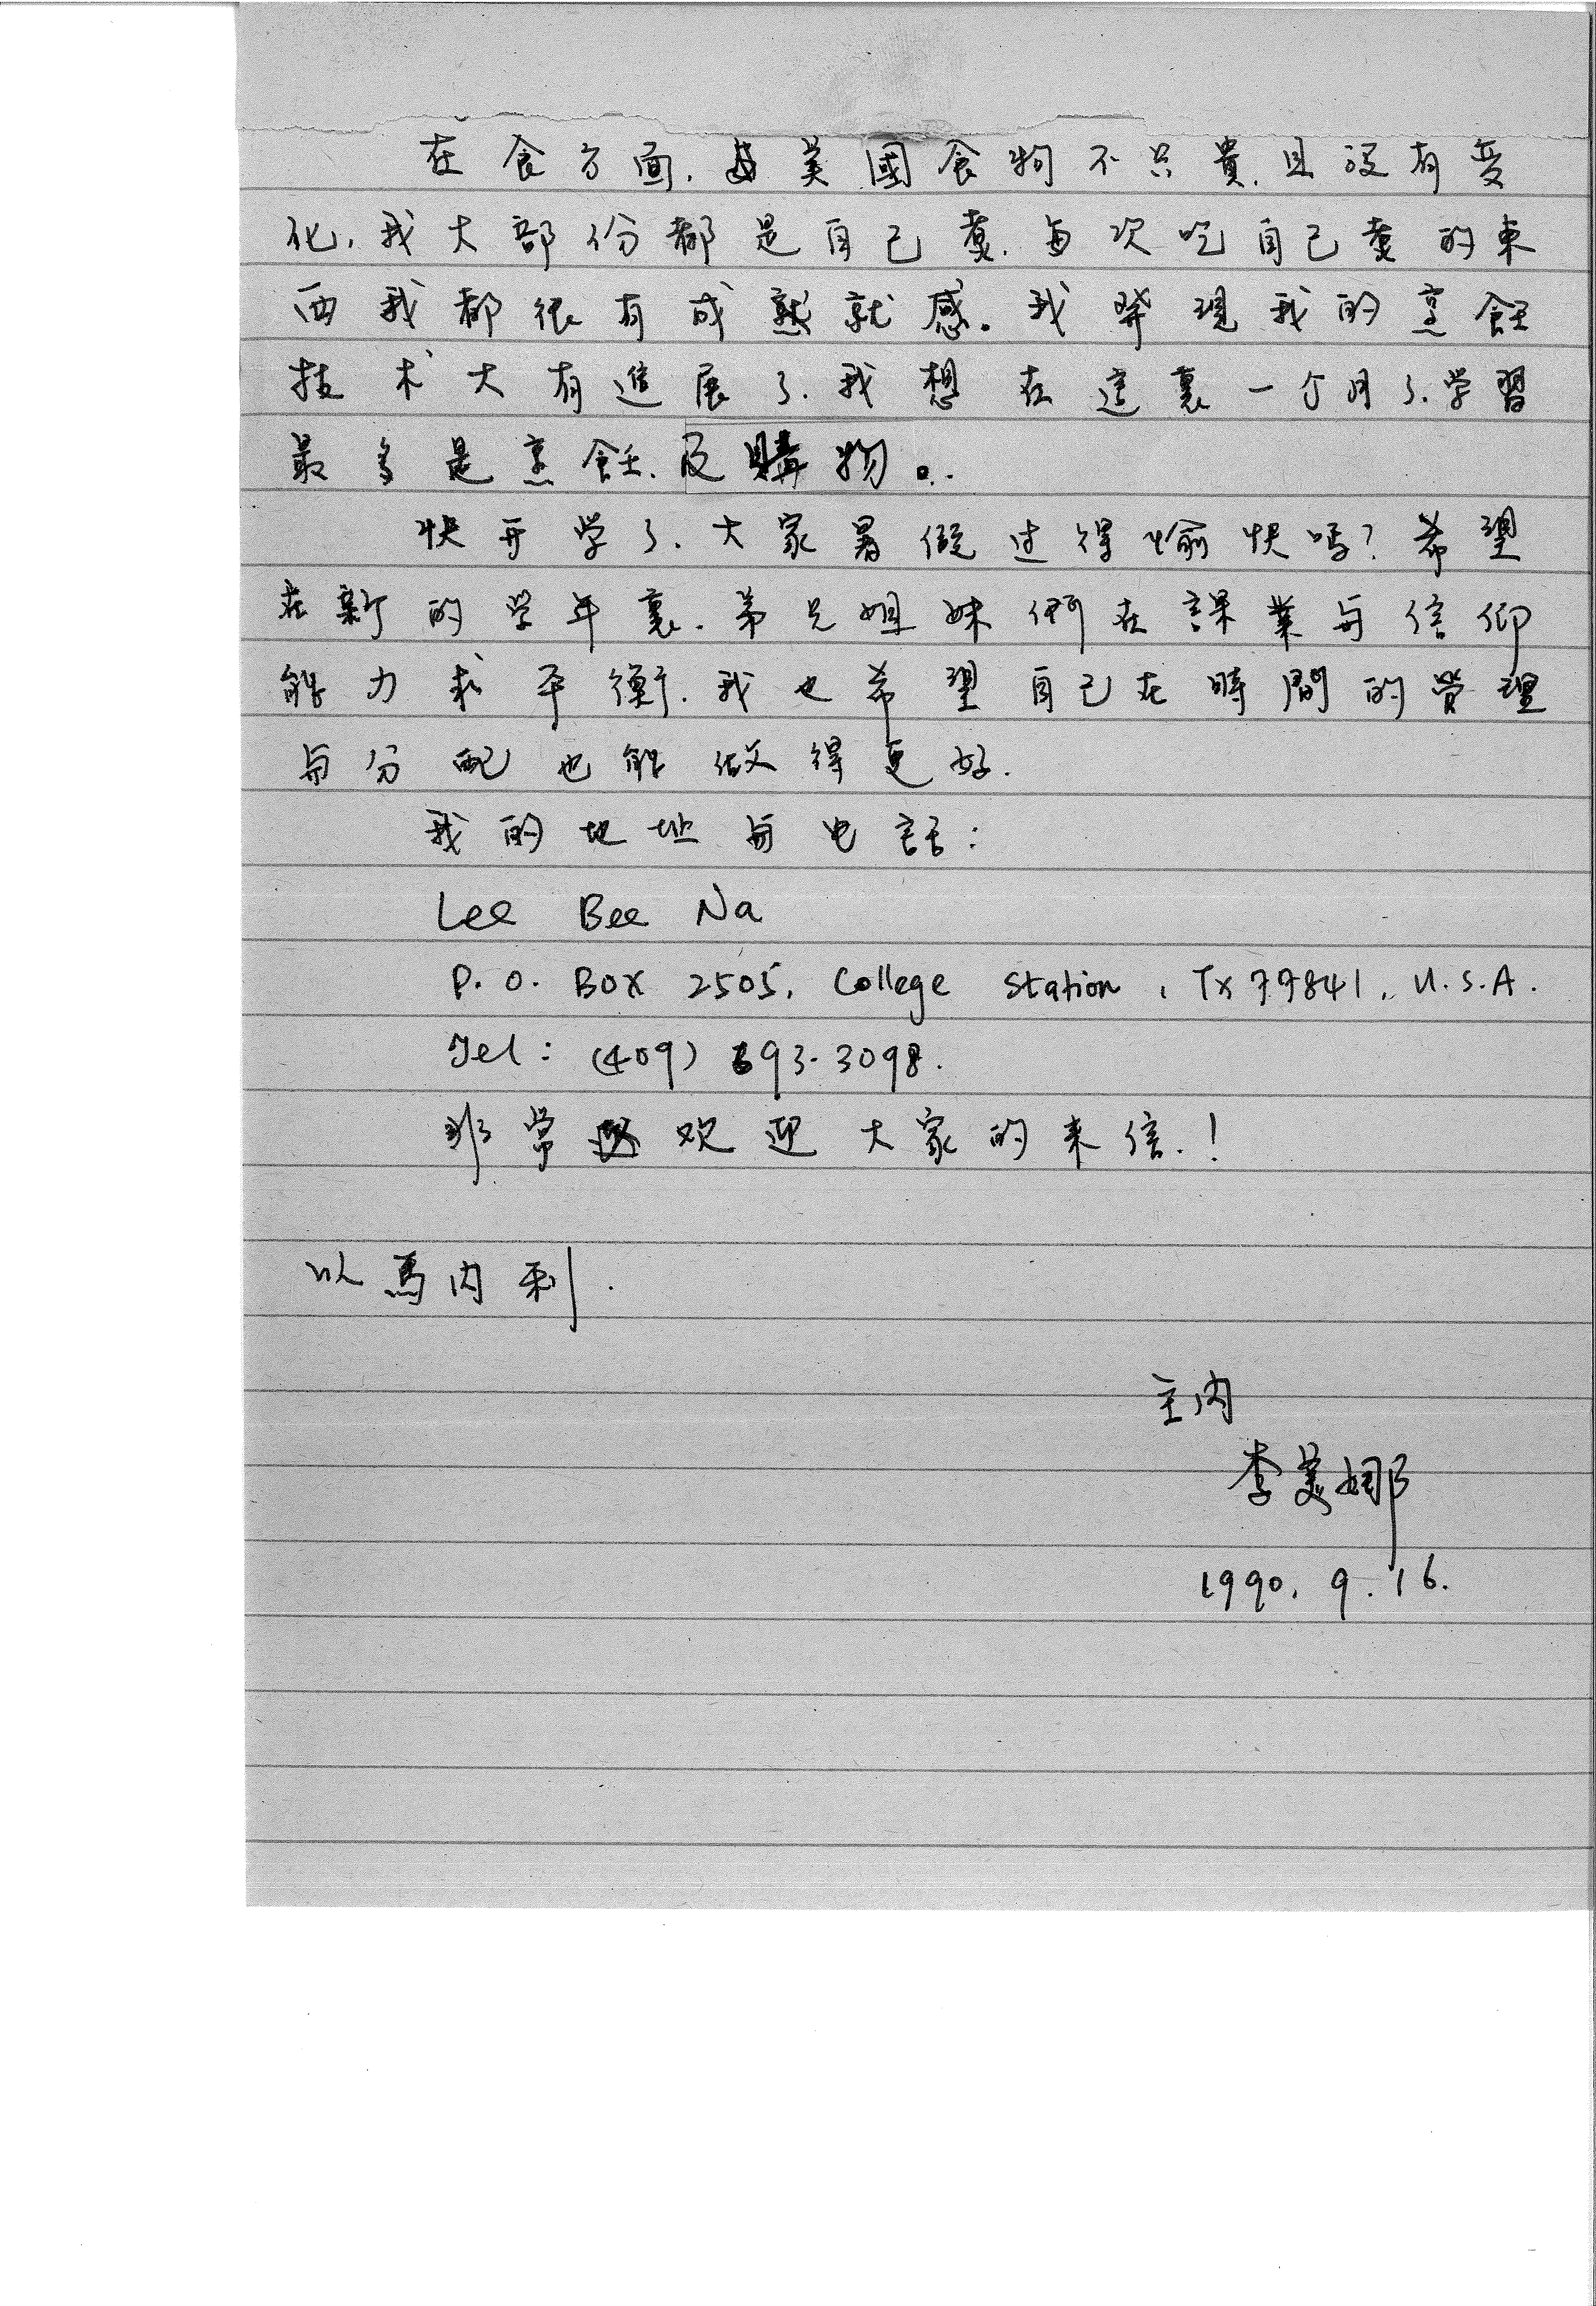 在食方面.美國食物不只貴.且沒有变
化.我大部份都是自己煮.每次吃自己煮的東
西我都很有成就感。我發現我的烹飪
技术大有進展了.我想在這裏一个月了.学習
最多是烹飪.及購物。.
快开学了.大家暑假过得愉快嗎?希望
在新的学年裏.弟兄姐妹們在課業与信仰
能力求平衡.我也希望自己在時間的管理
与分配也能做得更好.
我的地址与电話:
Lee Bee Na
P.O. Box 2505, College Station, Tx 77841, U.S.A.
Tel: (409) 693-3098.
非常欢迎大家的来信.!
以馬内利.
主内
李美娜
1990. 9. 16.